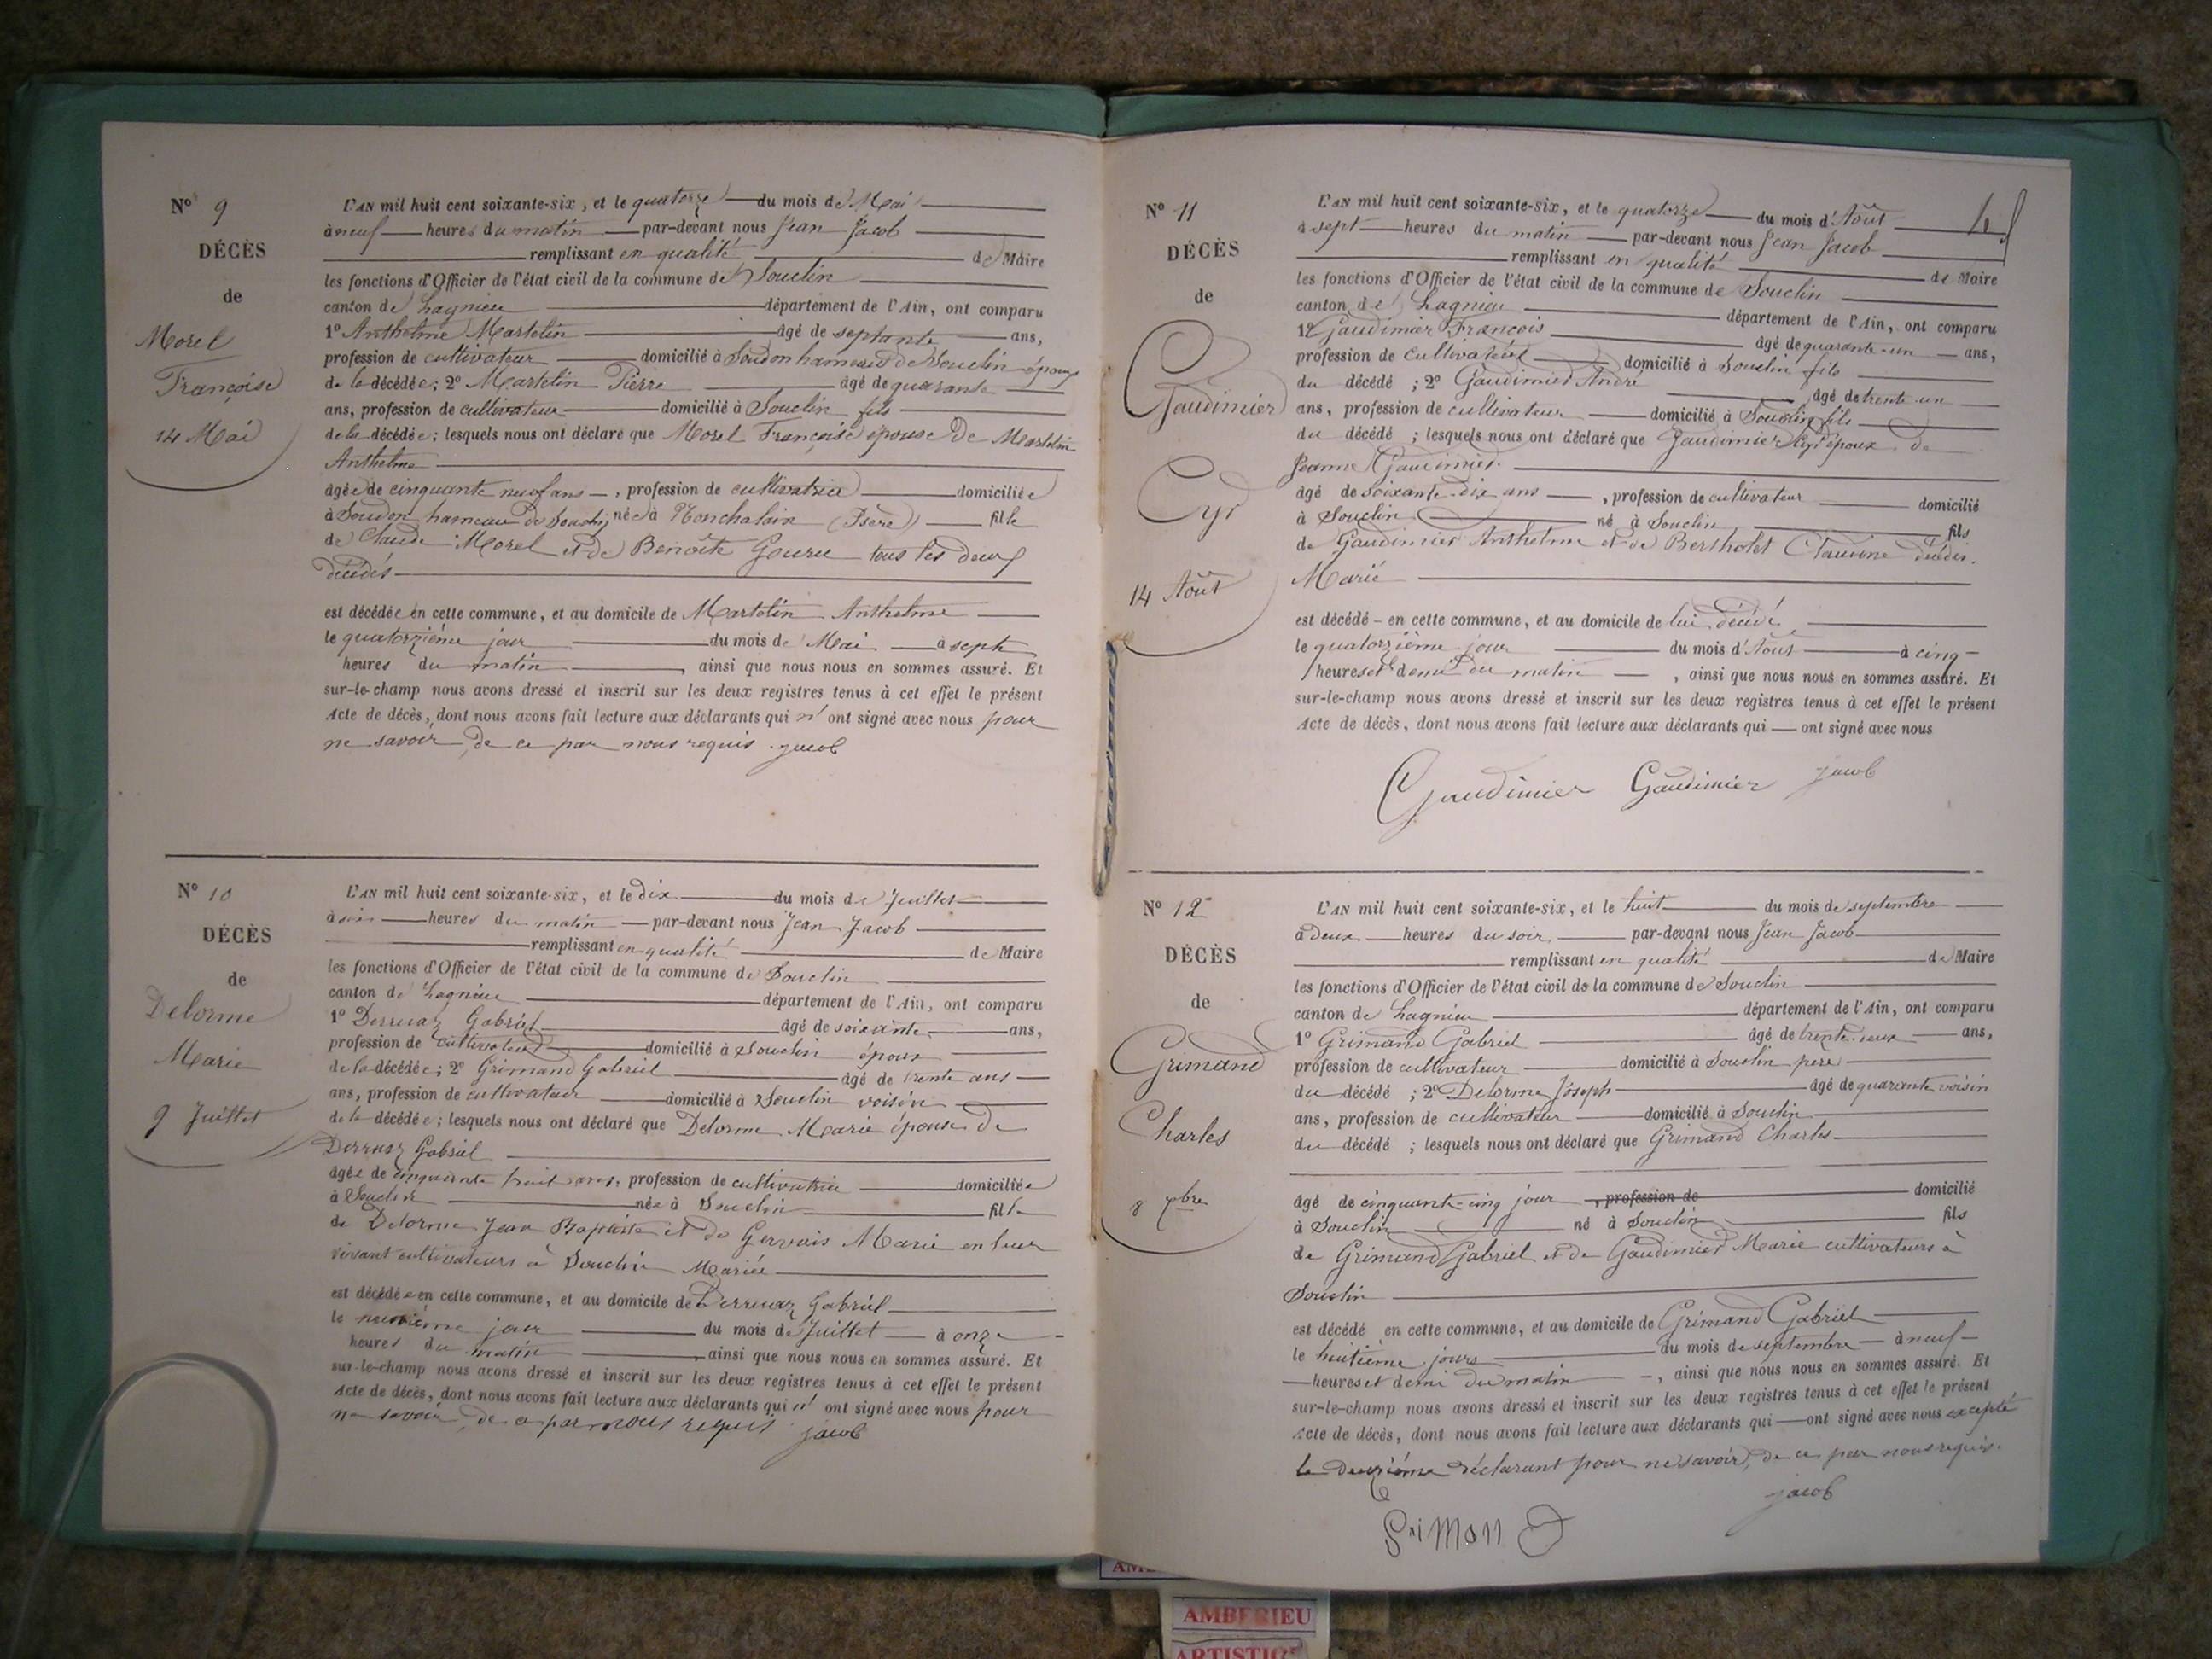 N° 9
DÉCÈS
de
Morel
Françoise
14 Mai
L'AN mil huit cent soixante-six, et le quatorze du mois de Mai
à neuf heures du matin par-devant nous Jean Jacob
remplissant en qualité de Maire
les fonctions d'Officier de l'état civil de la commune de Souclin
canton de Lagnieu département de l'Ain, ont comparu
1° Anthelme Martelin âgé de septante ans,
profession de cultivateur domicilié à Soudon hameau de Souclin époux
de la décédée; 2° Martelin Pierre âgé de quarante
ans, profession de cultivateur domicilié à Souclin fils
de la décédée; lesquels nous ont déclaré que Morel Françoise épouse de Martelin
Anthelme
âgée de cinquante neuf ans, profession de cultivatrice domiciliée
à Soudon hameau de Souclin née à (Isère) fille
de Claude Morel et de Benoîte tous les deux
décédés
est décédée en cette commune, et au domicile de Martelin Anthelme
le quatorzième jour du mois de Mai à sept
heures du matin ainsi que nous nous en sommes assuré. Et
sur-le-champ nous avons dressé et inscrit sur les deux registres tenus à cet effet le présent
Acte de décès, dont nous avons fait lecture aux déclarants qui n' ont signé avec nous pour
ne savoir, de ce par nous requis. Jacob
N° 10
DÉCÈS
de
Delorme
Marie
9 Juillet
L'AN mil huit cent soixante-six, et le dix du mois de Juillet
à heures du matin par-devant nous Jean Jacob
remplissant en qualité de Maire
les fonctions d'Officier de l'état civil de la commune de Souclin
canton de Lagnieu département de l'Ain, ont comparu
1° Derruaz Gabriel âgé de soixante ans,
profession de cultivateur domicilié à Souclin époux
de la décédée; 2° Grimand Gabriel âgé de trente ans
ans, profession de cultivateur domicilié à Souclin voisin
de la décédée; lesquels nous ont déclaré que Delorme Marie épouse de
Derruaz Gabriel
âgée de cinquante huit ans, profession de cultivatrice domiciliée
à Souclin née à Souclin fille
de Delorme Jean Baptiste et de Gervais Marie en leur
vivant cultivateurs à Souclin Mariée
est décédée en cette commune, et au domicile de Derruaz Gabriel
le neuvième jour du mois de Juillet à onze
heures du matin ainsi que nous nous en sommes assuré. Et
sur-le-champ nous avons dressé et inscrit sur les deux registres tenus à cet effet le présent
Acte de décès, dont nous avons fait lecture aux déclarants qui n' ont signé avec nous pour
ne savoir, de ce par nous requis Jacob
N° 11
DÉCÈS
de
Gaudimier
Cyr
14 Août
L'AN mil huit cent soixante-six, et le quatorze du mois d'Août
à sept heures du matin par-devant nous Jean Jacob
remplissant en qualité de Maire
les fonctions d'Officier de l'état civil de la commune de Souclin
canton de Lagnieu département de l'Ain, ont comparu
1° Gaudimier François âgé de quarante-un ans,
profession de cultivateur domicilié à Souclin fils
du décédé ; 2° Gaudimier André âgé de trente un
ans, profession de cultivateur domicilié à Souclin fils
du décédé ; lesquels nous ont déclaré que Gaudimier Cyr époux de
Jeanne Gaudimier.
âgé de soixante-dix ans, profession de cultivateur domicilié
à Souclin né à Souclin fils
de Gaudimier Anthelme et de Bertholet Claudine décédés.
Marié
est décédé en cette commune, et au domicile de lui décédé
le quatorzième jour du mois d'Août à cinq
heures et demi du matin, ainsi que nous nous en sommes assuré. Et
sur-le-champ nous avons dressé et inscrit sur les deux registres tenus à cet effet le présent
Acte de décès, dont nous avons fait lecture aux déclarants qui — ont signé avec nous
Gaudimier Gaudimier Jacob
N° 12
DÉCÈS
de
Grimand
Charles
8 7bre
L'AN mil huit cent soixante-six, et le huit du mois de septembre
à deux heures du soir par-devant nous Jean Jacob
remplissant en qualité de Maire
les fonctions d'Officier de l'état civil de la commune de Souclin
canton de Lagnieu département de l'Ain, ont comparu
1° Grimand Gabriel âgé de trente-deux ans,
profession de cultivateur domicilié à Souclin père
du décédé ; 2° Delorme Joseph âgé de quarante voisin
ans, profession de cultivateur domicilié à Souclin
du décédé ; lesquels nous ont déclaré que Grimand Charles
âgé de cinquante-cinq jour, profession de domicilié
à Souclin né à Souclin fils
de Grimand Gabriel et de Gaudimier Marie cultivateurs à
Souclin
est décédé en cette commune, et au domicile de Grimand Gabriel
le huitième jours du mois de septembre à neuf
heures et demi du matin, ainsi que nous nous en sommes assuré. Et
sur-le-champ nous avons dressé et inscrit sur les deux registres tenus à cet effet le présent
Acte de décès, dont nous avons fait lecture aux déclarants qui — ont signé avec nous excepté
le deuxième déclarant pour ne savoir, de ce par nous requis.
Jacob
Grimand
AMBERIEU